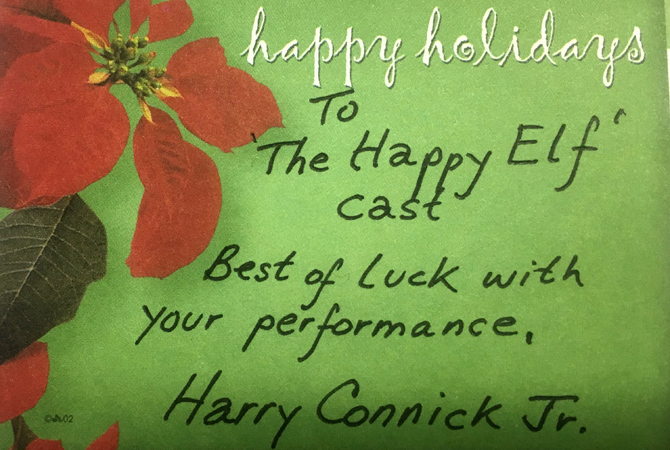 happy holidays
To
'The Happy Elf'
cast
Best of luck with
your performance,
Harry Connick Jr.